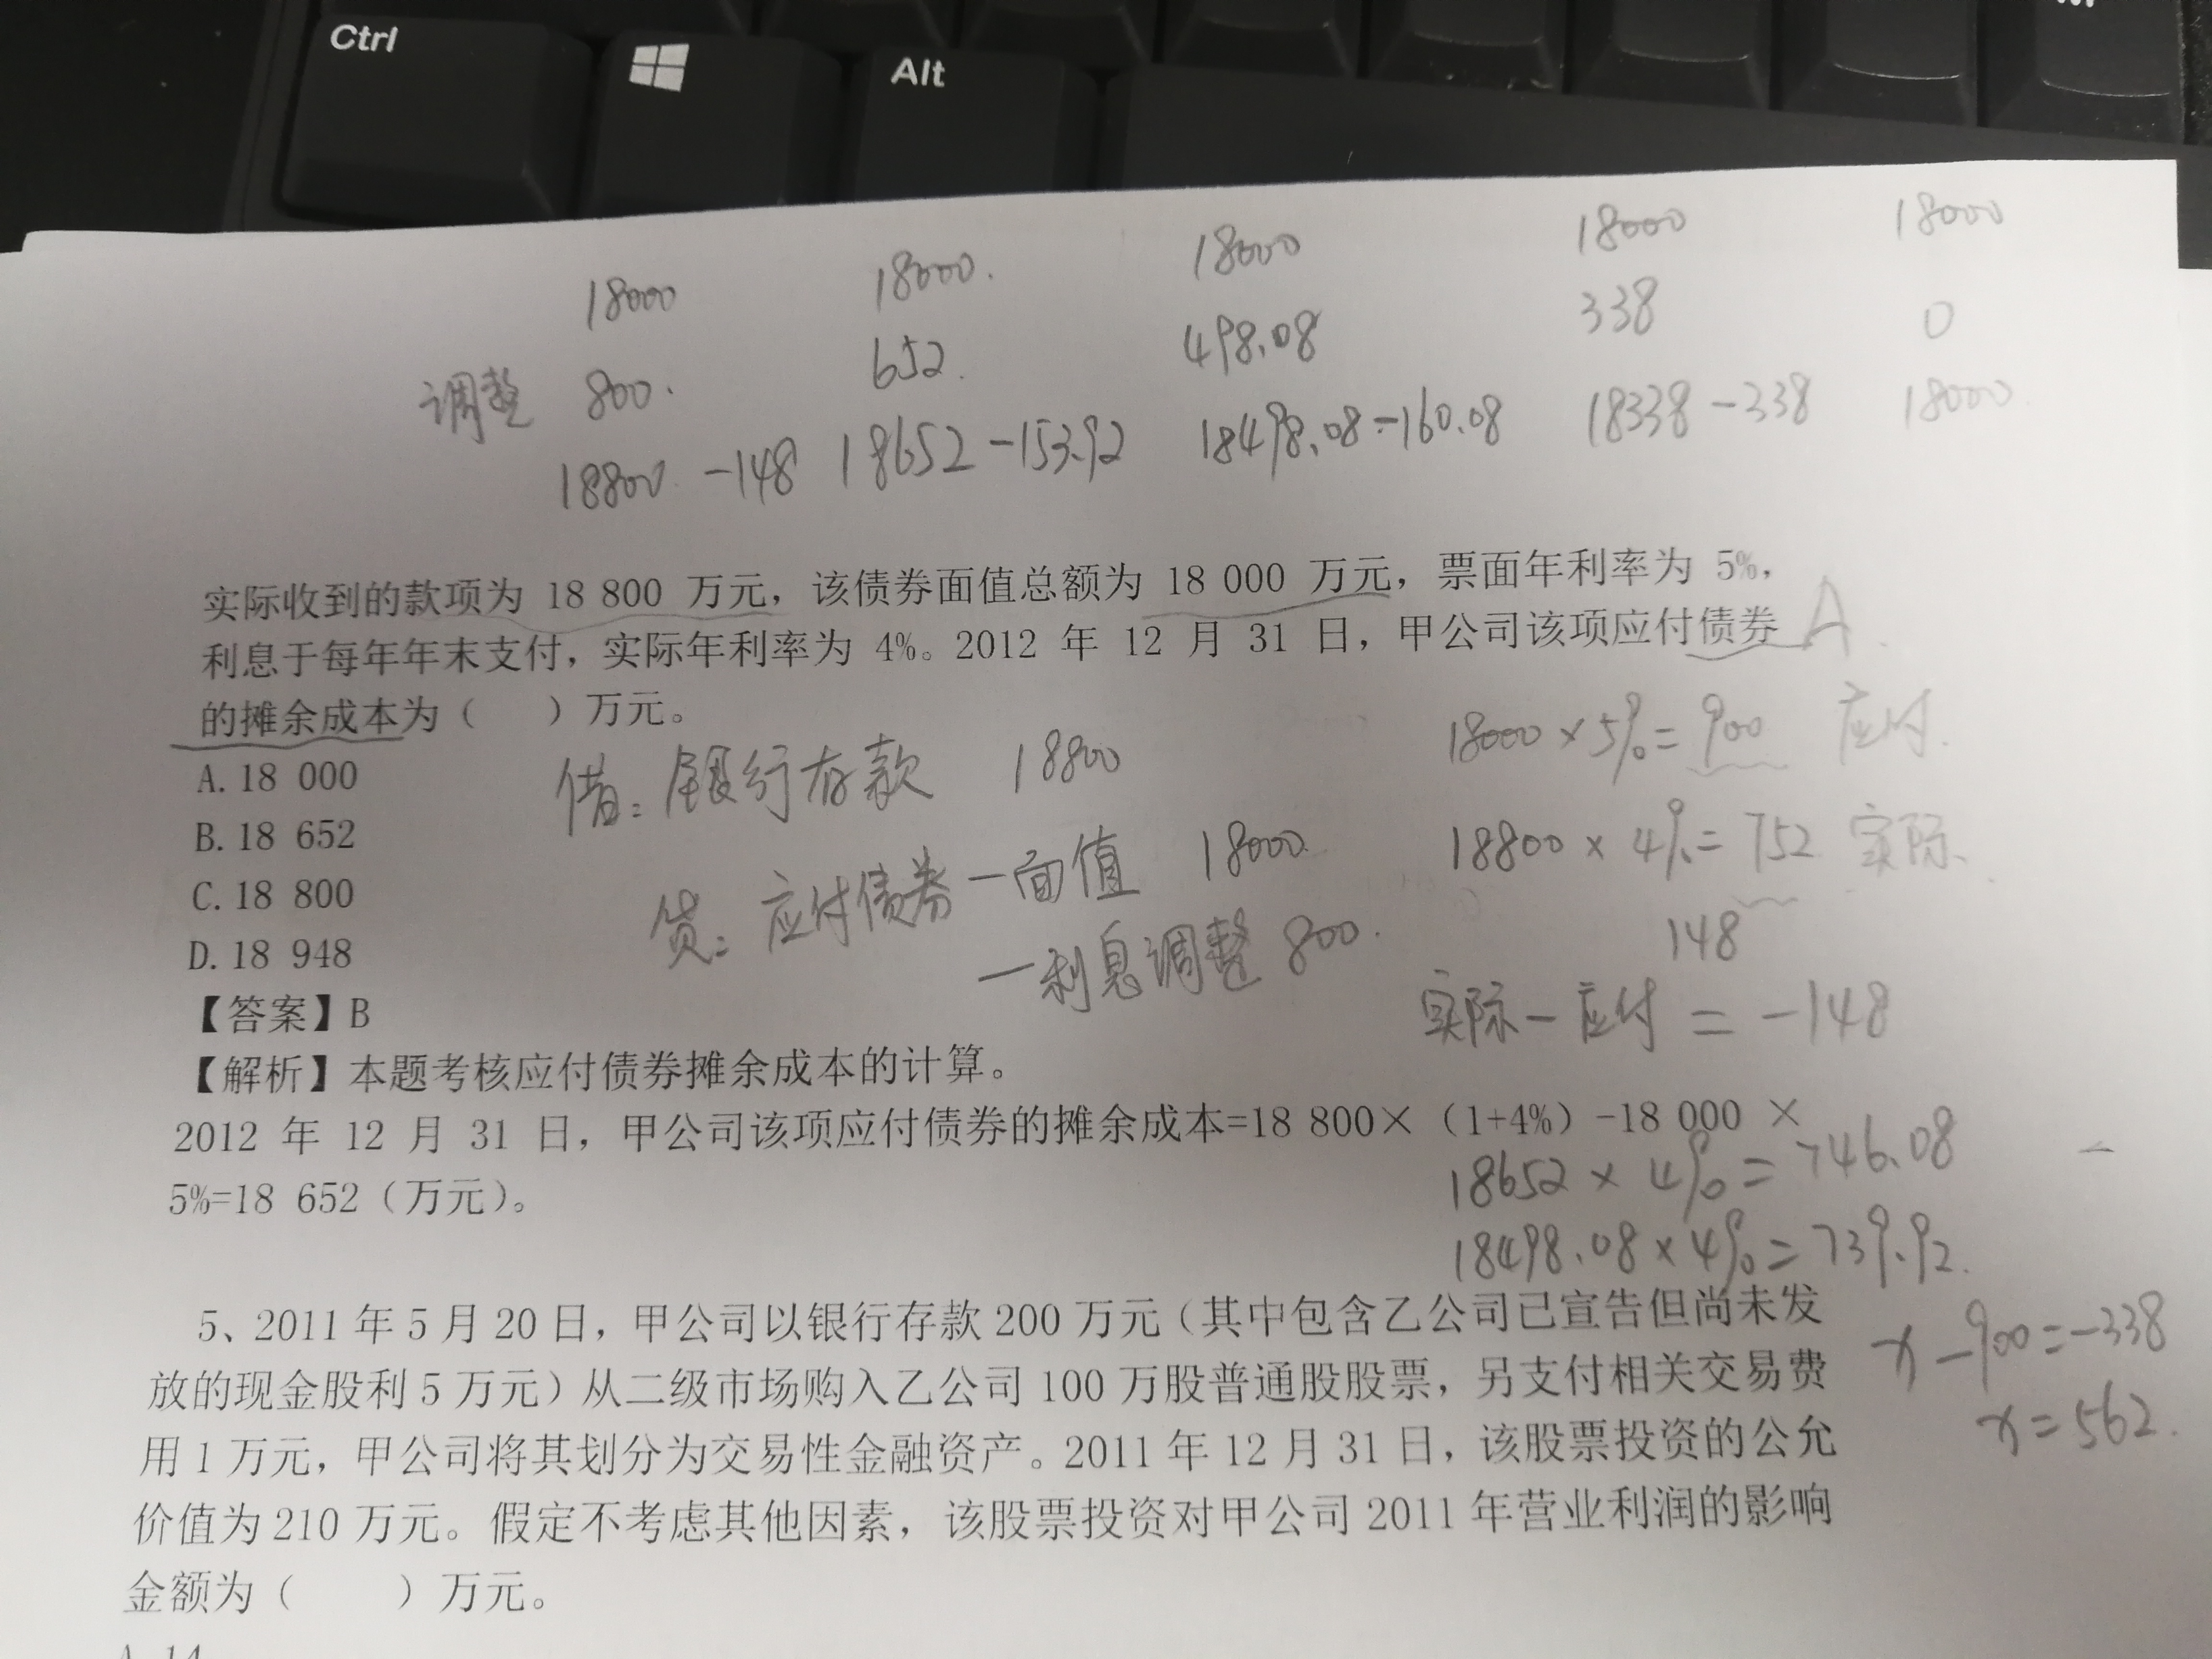 Ctrl
Alt
18000 18000. 18000 18000 18000
调整 800. 652. 498.08 338 0
18800 -148 18652 -153.92 18498.08 -160.08 18338 -338 18000
实际收到的款项为 18 800 万元，该债券面值总额为 18 000 万元，票面年利率为 5%，
利息于每年年末支付，实际年利率为 4%。2012 年 12 月 31 日，甲公司该项应付债券 A.
的摊余成本为（ ）万元。
18000×5%=900 应付.
A. 18 000
借: 银行存款 18800
B. 18 652
18800×4%=752 实际.
C. 18 800
贷: 应付债券—面值 18000
148
D. 18 948
—利息调整 800.
实际—应付=-148
【答案】B
【解析】本题考核应付债券摊余成本的计算。
2012 年 12 月 31 日，甲公司该项应付债券的摊余成本=18 800×（1+4%）-18 000 ×
5%=18 652（万元）。
18652×4%=746.08
18498.08×4%=739.92.
x-900=-338
x=562.
5、2011 年 5 月 20 日，甲公司以银行存款 200 万元（其中包含乙公司已宣告但尚未发
放的现金股利 5 万元）从二级市场购入乙公司 100 万股普通股股票，另支付相关交易费
用 1 万元，甲公司将其划分为交易性金融资产。2011 年 12 月 31 日，该股票投资的公允
价值为 210 万元。假定不考虑其他因素，该股票投资对甲公司 2011 年营业利润的影响
金额为（ ）万元。